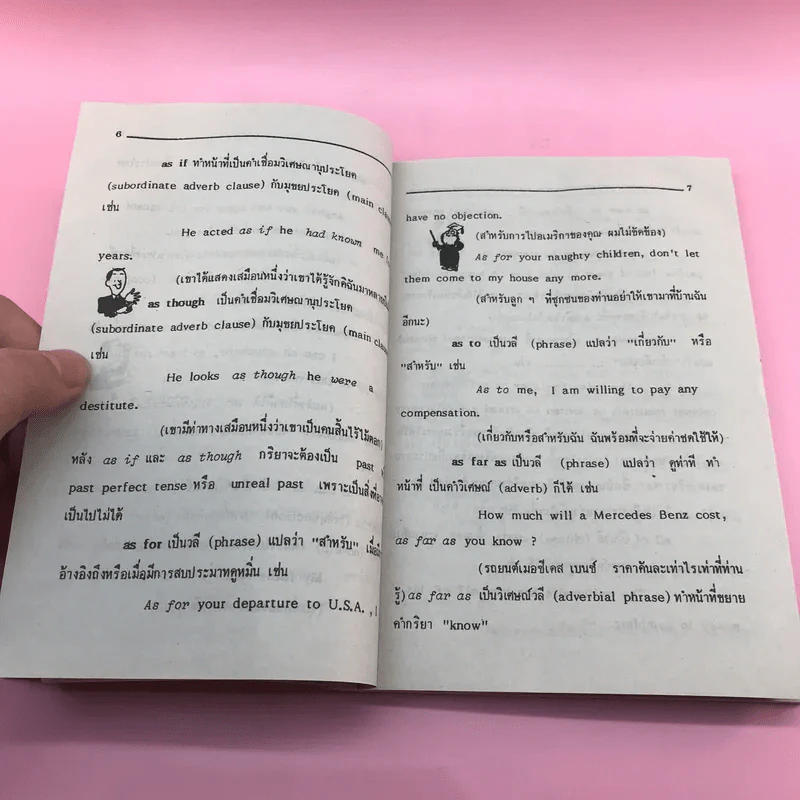 6
as if ทำหน้าที่เป็นคำเชื่อมวิเศษณานุประโยค
(subordinate adverb clause) กับมุขยประโยค (main
เช่น
He acted as if he had known me
years.
(เขาได้แสดงเสมือนหนึ่งว่าเขาได้รู้จักดิฉันมาหลาย
as though เป็นคำเชื่อมวิเศษณานุประโยค
(subordinate adverb clause) กับมุขยประโยค (main
เช่น
He looks as though he were a
destitute.
(เขามีท่าทางเสมือนหนึ่งว่าเขาเป็นคนสิ้นไร้ไม้ตอก)
หลัง as if และ as though กริยาจะต้องเป็น past
past perfect tense หรือ unreal past เพราะเป็นสิ่งที่
เป็นไปไม่ได้
as for เป็นวลี (phrase) แปลว่า "สำหรับ"
อ้างอิงถึงหรือเมื่อมีการสบประมาทดูหมิ่น เช่น
As for your departure to U.S.A., I
7
have no objection.
(สำหรับการไปอเมริกาของคุณ ผมไม่ขัดข้อง)
As for your naughty children, don't let
them come to my house any more.
(สำหรับลูก ๆ ที่ซุกซนของท่านอย่าให้เขามาที่บ้านฉัน
อีกนะ)
as to เป็นวลี (phrase) แปลว่า "เกี่ยวกับ" หรือ
"สำหรับ" เช่น
As to me, I am willing to pay any
compensation.
(เกี่ยวกับหรือสำหรับฉัน ฉันพร้อมที่จะจ่ายค่าชดใช้ให้)
as far as เป็นวลี (phrase) แปลว่า ดูท่าที ทำ
หน้าที่ เป็นคำวิเศษณ์ (adverb) ก็ได้ เช่น
How much will a Mercedes Benz cost,
as far as you know ?
(รถยนต์เมอซีเดส เบนซ์ ราคาคันละเท่าไรเท่าที่ท่าน
รู้) as far as เป็นวิเศษณ์วลี (adverbial phrase) ทำหน้าที่ขยาย
คำกริยา "know"